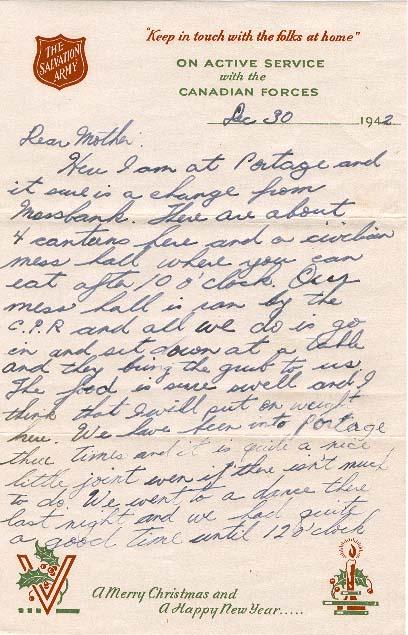 THE
SALVATION
ARMY
"Keep in touch with the folks at home"
ON ACTIVE SERVICE
with the
CANADIAN FORCES
Dec 30 1942
Dear Mother:
Here I am at Portage and
it sure is a change from
Mossbank. There are about
4 canteens here and a civilian
mess hall where you can
eat after 10 o'clock. Our
mess hall is ran by the
C.P.R and all we do is go
in and sit down at a table
and they bring the grub to us
The food is sure swell and I
think that I will put on weight
here. We have been into Portage
three times and it is quite a nice
little joint even if there isn't much
to do. We went to a dance there
last night and we had quite
a good time until 12 o'clock
V
A Merry Christmas and
A Happy New Year.....